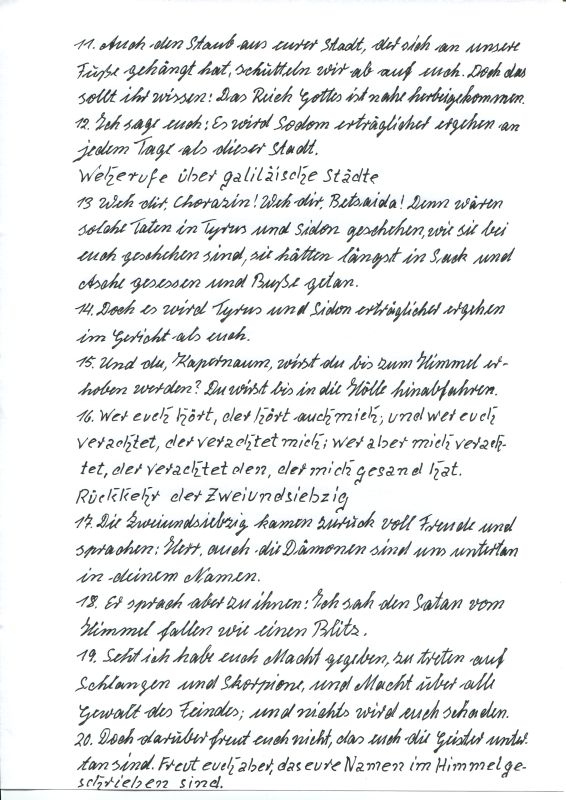 11. Auch den Staub aus eurer Stadt, der sich an unsere
Füße gehängt hat, schütteln wir ab auf euch. Doch das
sollt ihr wissen: Das Reich Gottes ist nahe herbeigekommen.
12. Ich sage euch: Es wird Sodom erträglicher ergehen an
jedem Tage als dieser Stadt.
Weherufe über galiläische Städte
13 Weh dir, Chorazin! Weh dir, Betsaida! Denn wären
solche Taten in Tyrus und Sidon geschehen, wie sie bei
euch geschehen sind, sie hätten längst in Sack und
Asche gesessen und Buße getan.
14. Doch es wird Tyrus und Sidon erträglicher ergehen
im Gericht als euch.
15. Und du, Kapernaum, wirst du bis zum Himmel er-
hoben werden? Du wirst bis in die Hölle hinabfahren.
16. Wer euch hört, der hört auch mich; und wer euch
verachtet, der verachtet mich; wer aber mich verach-
tet, der verachtet den, der mich gesand hat.
Rückkehr der Zweiundsiebzig
17. Die Zweiundsiebzig kamen zurück voll Freude und
sprachen: Herr, auch die Dämonen sind uns untertan
in deinem Namen.
18. Er sprach aber zu ihnen: Ich sah den Satan vom
Himmel fallen wie einen Blitz.
19. Seht ich habe euch Macht gegeben, zu treten auf
Schlangen und Skorpione, und Macht über alle
Gewalt des Feindes; und nichts wird euch schaden.
20. Doch darüber freut euch nicht, das euch die Geister unter-
tan sind. Freut euch aber, das eure Namen im Himmel ge-
schrieben sind.